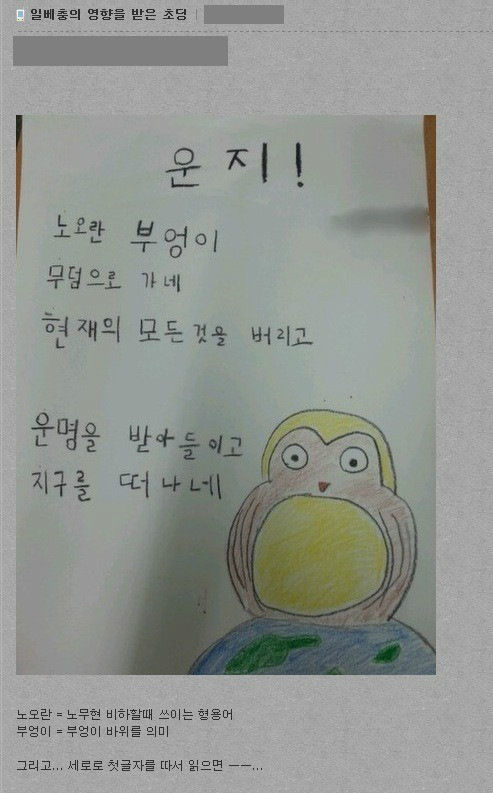 일베충의 영향을 받은 초딩
운지!
노오란 부엉이
무덤으로 가네
현재의 모든것을 버리고
운명을 받아들이고
지구를 떠나네
노오란 = 노무현 비하할때 쓰이는 형용어
부엉이 = 부엉이 바위를 의미
그리고... 세로로 첫글자를 따서 읽으면 ㅡㅡ...